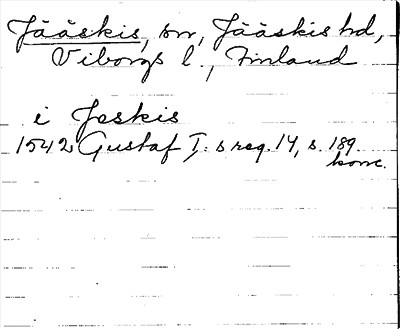 Jääskis, sn, Jääskis hd,
Viborgs l., Finland
i Jeskis
1542 Gustaf I:s reg. 14, s. 189
konc.